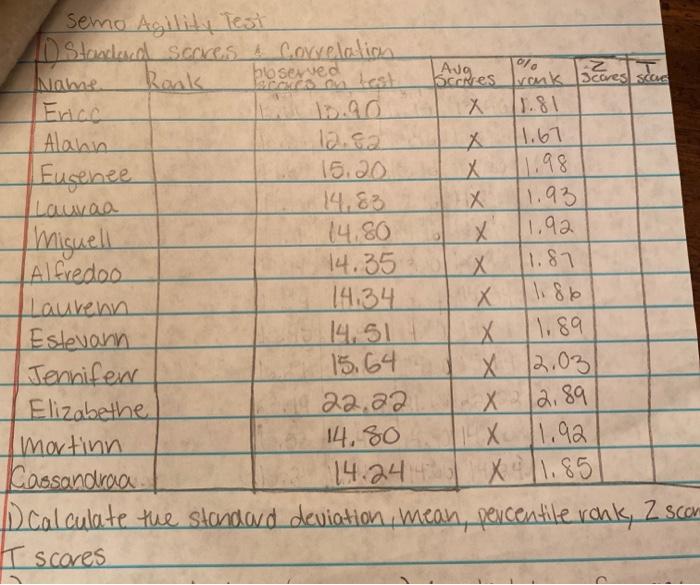 Semo Agility Test
1) Standard scores & Correlation
Name Rank Observed scores on test Avg Scores % rank Z Scores T
Ericc 13.90 X 1.81
Alann 12.82 X 1.67
Eugenee 15.20 X 1.98
Lauraa 14.83 X 1.93
Miguell 14.80 X 1.92
Alfredoo 14.35 X 1.87
Laurenn 14.34 X 1.86
Estevann 14.51 X 1.89
Jenniferr 15.64 X 2.03
Elizabethe 22.22 X 2.89
Martinn 14.80 X 1.92
Cassandraa 14.24 X 1.85
1) Calculate the standard deviation, mean, percentile rank, Z
T scores